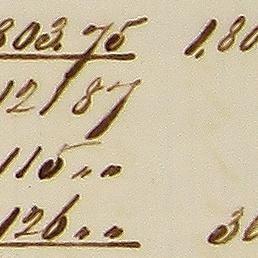 803.75 1,80
12187
115 "
126 " 36